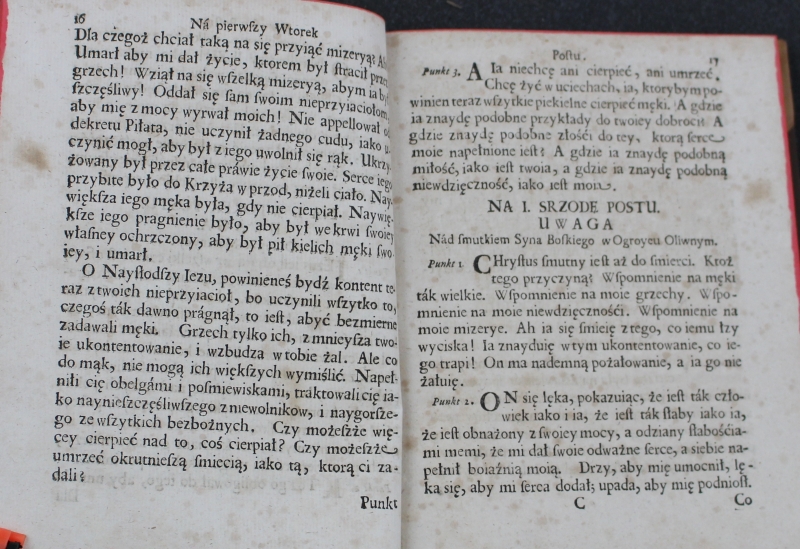 16
Ná pierwſzy Wtorek
Dla czegoż chciał taką na się przyiąć mizeryą?
Umarł aby mi dał życie, ktorem był ſtracił przez
grzech! Wziął na się wſzelką mizeryą, abym ia był
ſzczęśliwy! Oddał się ſam ſwoim nieprzyiaciołom,
aby mię z mocy wyrwał moich! Nie appellował od
dekretu Piłata, nie uczynił żadnego cudu, iako u-
czynić mogł, aby był z iego uwolnił się rąk. Ukrzy-
żowany był przez całe práwie życie ſwoie. Serce iego
przybite było do Krzyża w przod, niżeli ciało. Nay-
większa iego męka była, gdy nie cierpiał. Naywię-
kſze iego pragnienie było, aby był we krwi ſwoiey
właſney ochrzczony, aby był pił kielich męki ſwo-
iey, i umarł.
O Nayſłodſzy Iezu, powinieneś bydź kontent te-
raz z twoich nieprzyiacioł, bo uczynili wſzytko to,
czegoś ták dawno prágnął, to ieſt, abyć bezmierne
zadawali męki. Grzech tylko ich, zmnieyſza two-
ie ukontentowanie, i wzbudza w tobie żal. Ale co
do mąk, nie mogą ich większych wymiślić. Napeł-
nili cię obelgámi i poſmiewiskami, traktowali cię ia-
ko naynieſzczęśliwſzego z niewolnikow, i naygorſze-
go ze wſzytkich bezbożnych. Czy możeſzże wię-
cey cierpieć nad to, coś cierpiał? Czy możeſzże
umrzeć okrutnieſzą ſmiecią, iako tą, ktorą ci za-
dali?
Punkt
Poſtu.
17
Punkt 3. A Ia niechcę ani cierpieć, ani umrzeć.
Chcę żyć w uciechach, ia, ktorybym po-
winien teraz wſzytkie piekielne cierpieć męki. A gdzie
ia znaydę podobne przykłady do twoiey dobroci? A
gdzie znaydę podobne złości do tey, ktorą ſerce
moie napełnione ieſt? A gdzie ia znaydę podobną
miłość, iako ieſt twoia, a gdzie ia znaydę podobną
niewdzięczność, iako ieſt moia.
NA I. SRZODĘ POSTU.
UWAGA
Nád ſmutkiem Syna Boſkiego w Ogroycu Oliwnym.
Punkt 1. CHryſtus ſmutny ieſt aż do śmierci. Ktoż
tego przyczyną? Wſpomnienie na męki
ták wielkie. Wſpomnienie na moie grzechy. Wſpo-
mnienie na moie niewdzięczności. Wſpomnienie na
moie mizerye. Ah ia ſię śmieię z tego, co iemu łzy
wyciska! Ia znayduię w tym ukontentowanie, co ie-
go trapi! On ma nademną pożałowanie, a ia go nie
żałuię.
Punkt 2. ON się lęka, pokazuiąc, że ieſt ták czło-
wiek iako i ia, że ieſt ták ſłaby iako ia,
że ieſt obnażony z ſwoiey mocy, a odziany ſłabościa-
mi memi, że mi dał ſwoie odważne ſerce, a siebie na-
pełnuł boiaźnią moią. Drzy, aby mię umocnił, lę-
ka się, aby mi ſerca dodał; upada, aby mię podnioſł.
C
Co